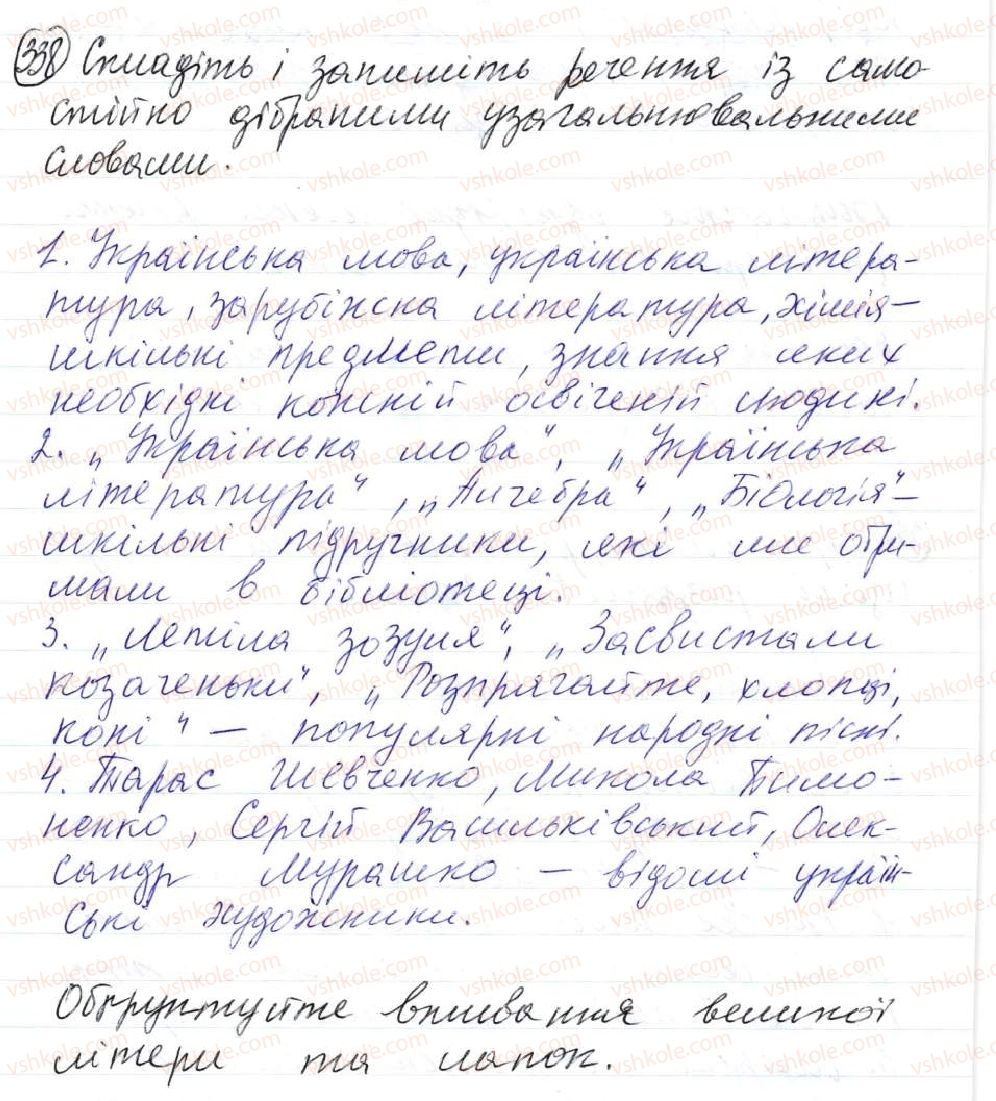 338 Складіть і запишіть речення із само-
стійно дібраними узагальнювальними
словами.
1. Українська мова, українська літера-
тура, зарубіжна література, хімія –
шкільні предмети, знання яких
необхідні кожній освіченій людині.
2. „Українська мова“, „Українська
література“, „Алгебра“, „Біологія“ –
шкільні підручники, які ми отри-
мали в бібліотеці.
3. „Летіла зозуля“, „Засвистали
козаченьки“, „Розпрягайте, хлопці,
коні“ – популярні народні пісні.
4. Тарас Шевченко, Микола Тимо-
ненко, Сергій Васильківський, Олек-
сандр Мурашко – відомі україн-
ські художники.
Обґрунтуйте вживання великої
літери та лапок.